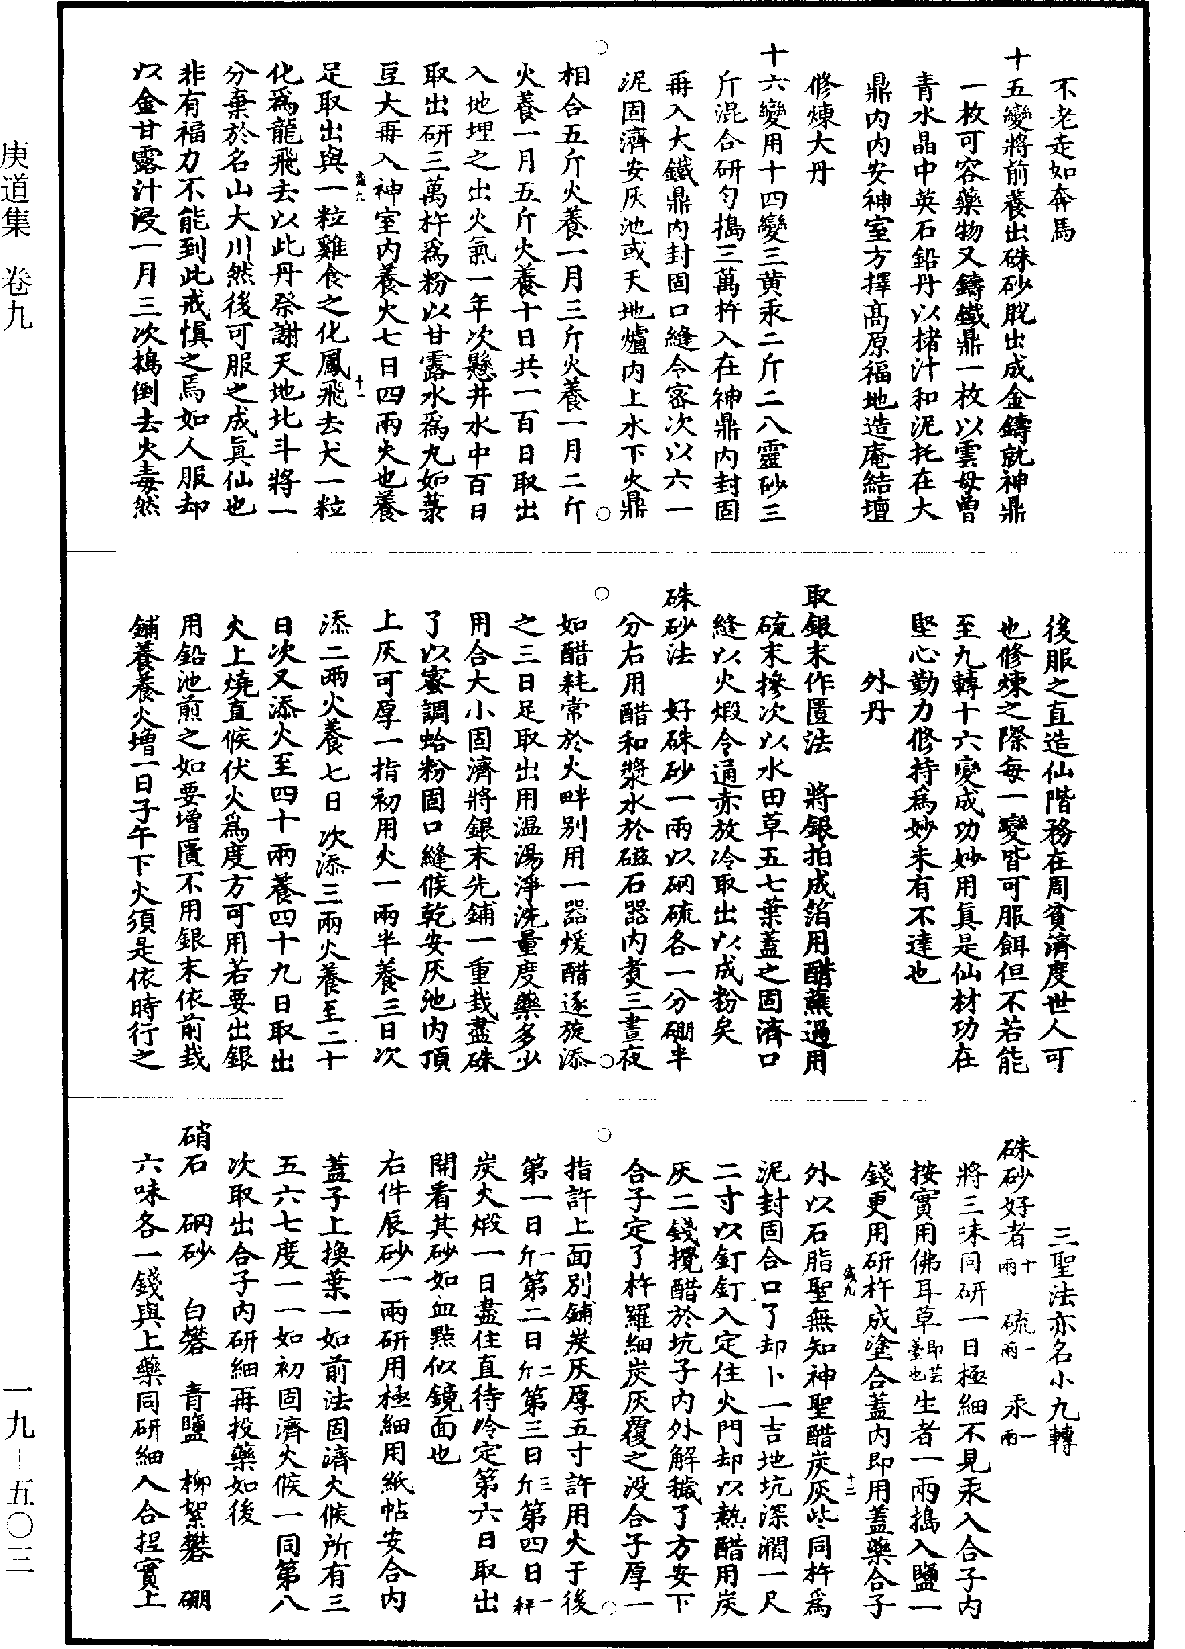 庚道集　卷九
不老走如奔馬
十五變將前養出硃砂脫出成金鑄就神鼎
一枚可容藥物又鑄鐵鼎一枚以雲母曾
青水晶中英石鉛丹以楮汁和泥托在大
鼎內內安神室方擇高原福地造庵結壇
修煉大丹
十六變用十四變三黃汞二斤二八靈砂三
斤混合研勻搗三萬杵入在神鼎內封固
再入大鐵鼎內封固口縫令密次以六一
泥固濟安灰池或天地爐內上水下火鼎
相合五斤火養一月三斤火養一月二斤
火養一月五斤火養十日共一百日取出
入地埋之出火氣一年次懸井水中百日
取出研三萬杵爲粉以甘露水爲丸如菉
豆大再入神室內養火七日四兩火也養
足取出與一粒雞食之化鳳飛去犬一粒
化爲龍飛去以此丹祭謝天地北斗將一
分棄於名山大川然後可服之成眞仙也
非有福力不能到此戒慎之焉如人服却
以金甘露汁浸一月三次搗倒去火毒然
後服之直造仙階務在周貧濟度世人可
也修煉之際每一變皆可服餌但不若能
至九轉十六變成功妙用眞是仙材功在
堅心勤力修持爲妙未有不達也
外丹
取銀末作匱法　將銀拍成箔用醋蘸過用
硫末摻次以水田草五七葉蓋之固濟口
縫以火煅令通赤放冷取出以成粉矣
硃砂法　好硃砂一兩以硇硫各一分硼半
分右用醋和漿水於磁石器內煮三晝夜
如醋耗常於火畔別用一器煖醋逐旋添
之三日足取出用溫湯淨洗量度藥多少
用合大小固濟將銀末先鋪一重栽盡硃
了以蜜調蛤粉固口縫候乾安灰池內頂
上灰可厚一指初用火一兩半養三日次
添二兩火養七日次添三兩火養至二十
日次又添火至四十兩養四十九日取出
火上燒直候伏火爲度方可用若要出銀
用鉛池煎之如要增匱不用銀末依前栽
鋪養養火增一日子午下火須是依時行之
三聖法亦名小九轉
硃砂好者十兩　硫一兩　汞一兩
將三味同研一日極細不見汞入合子內
按實用佛耳草即芸薹也生者一兩搗入鹽一
錢更用研杵成塗合蓋內即用蓋藥合子
外以石脂聖無知神聖醋炭灰些同杵爲
泥封固合口了却卜一吉地坑深濶一尺
二寸以釘釘入定住火門却以熱醋用炭
灰二錢攪醋於坑子內外解穢了方安下
合子定了杵羅細炭灰覆之沒合子厚一
指許上面別鋪炭灰厚五寸許用火于後
第一日一斤第二日二斤第三日三斤第四日一秤
炭火煅一日盡住直待冷定第六日取出
開看其砂如血點似鏡面也
右件辰砂一兩研用極細用紙帖安合內
蓋子上換葉一如前法固濟火候所有三
五六七度一一如初固濟火候一同第八
次取出合子內研細再投藥如後
硝石　硇砂　白礬　青鹽　柳絮礬　硼
六味各一錢與上藥同研細入合捏實上
一九－五〇三